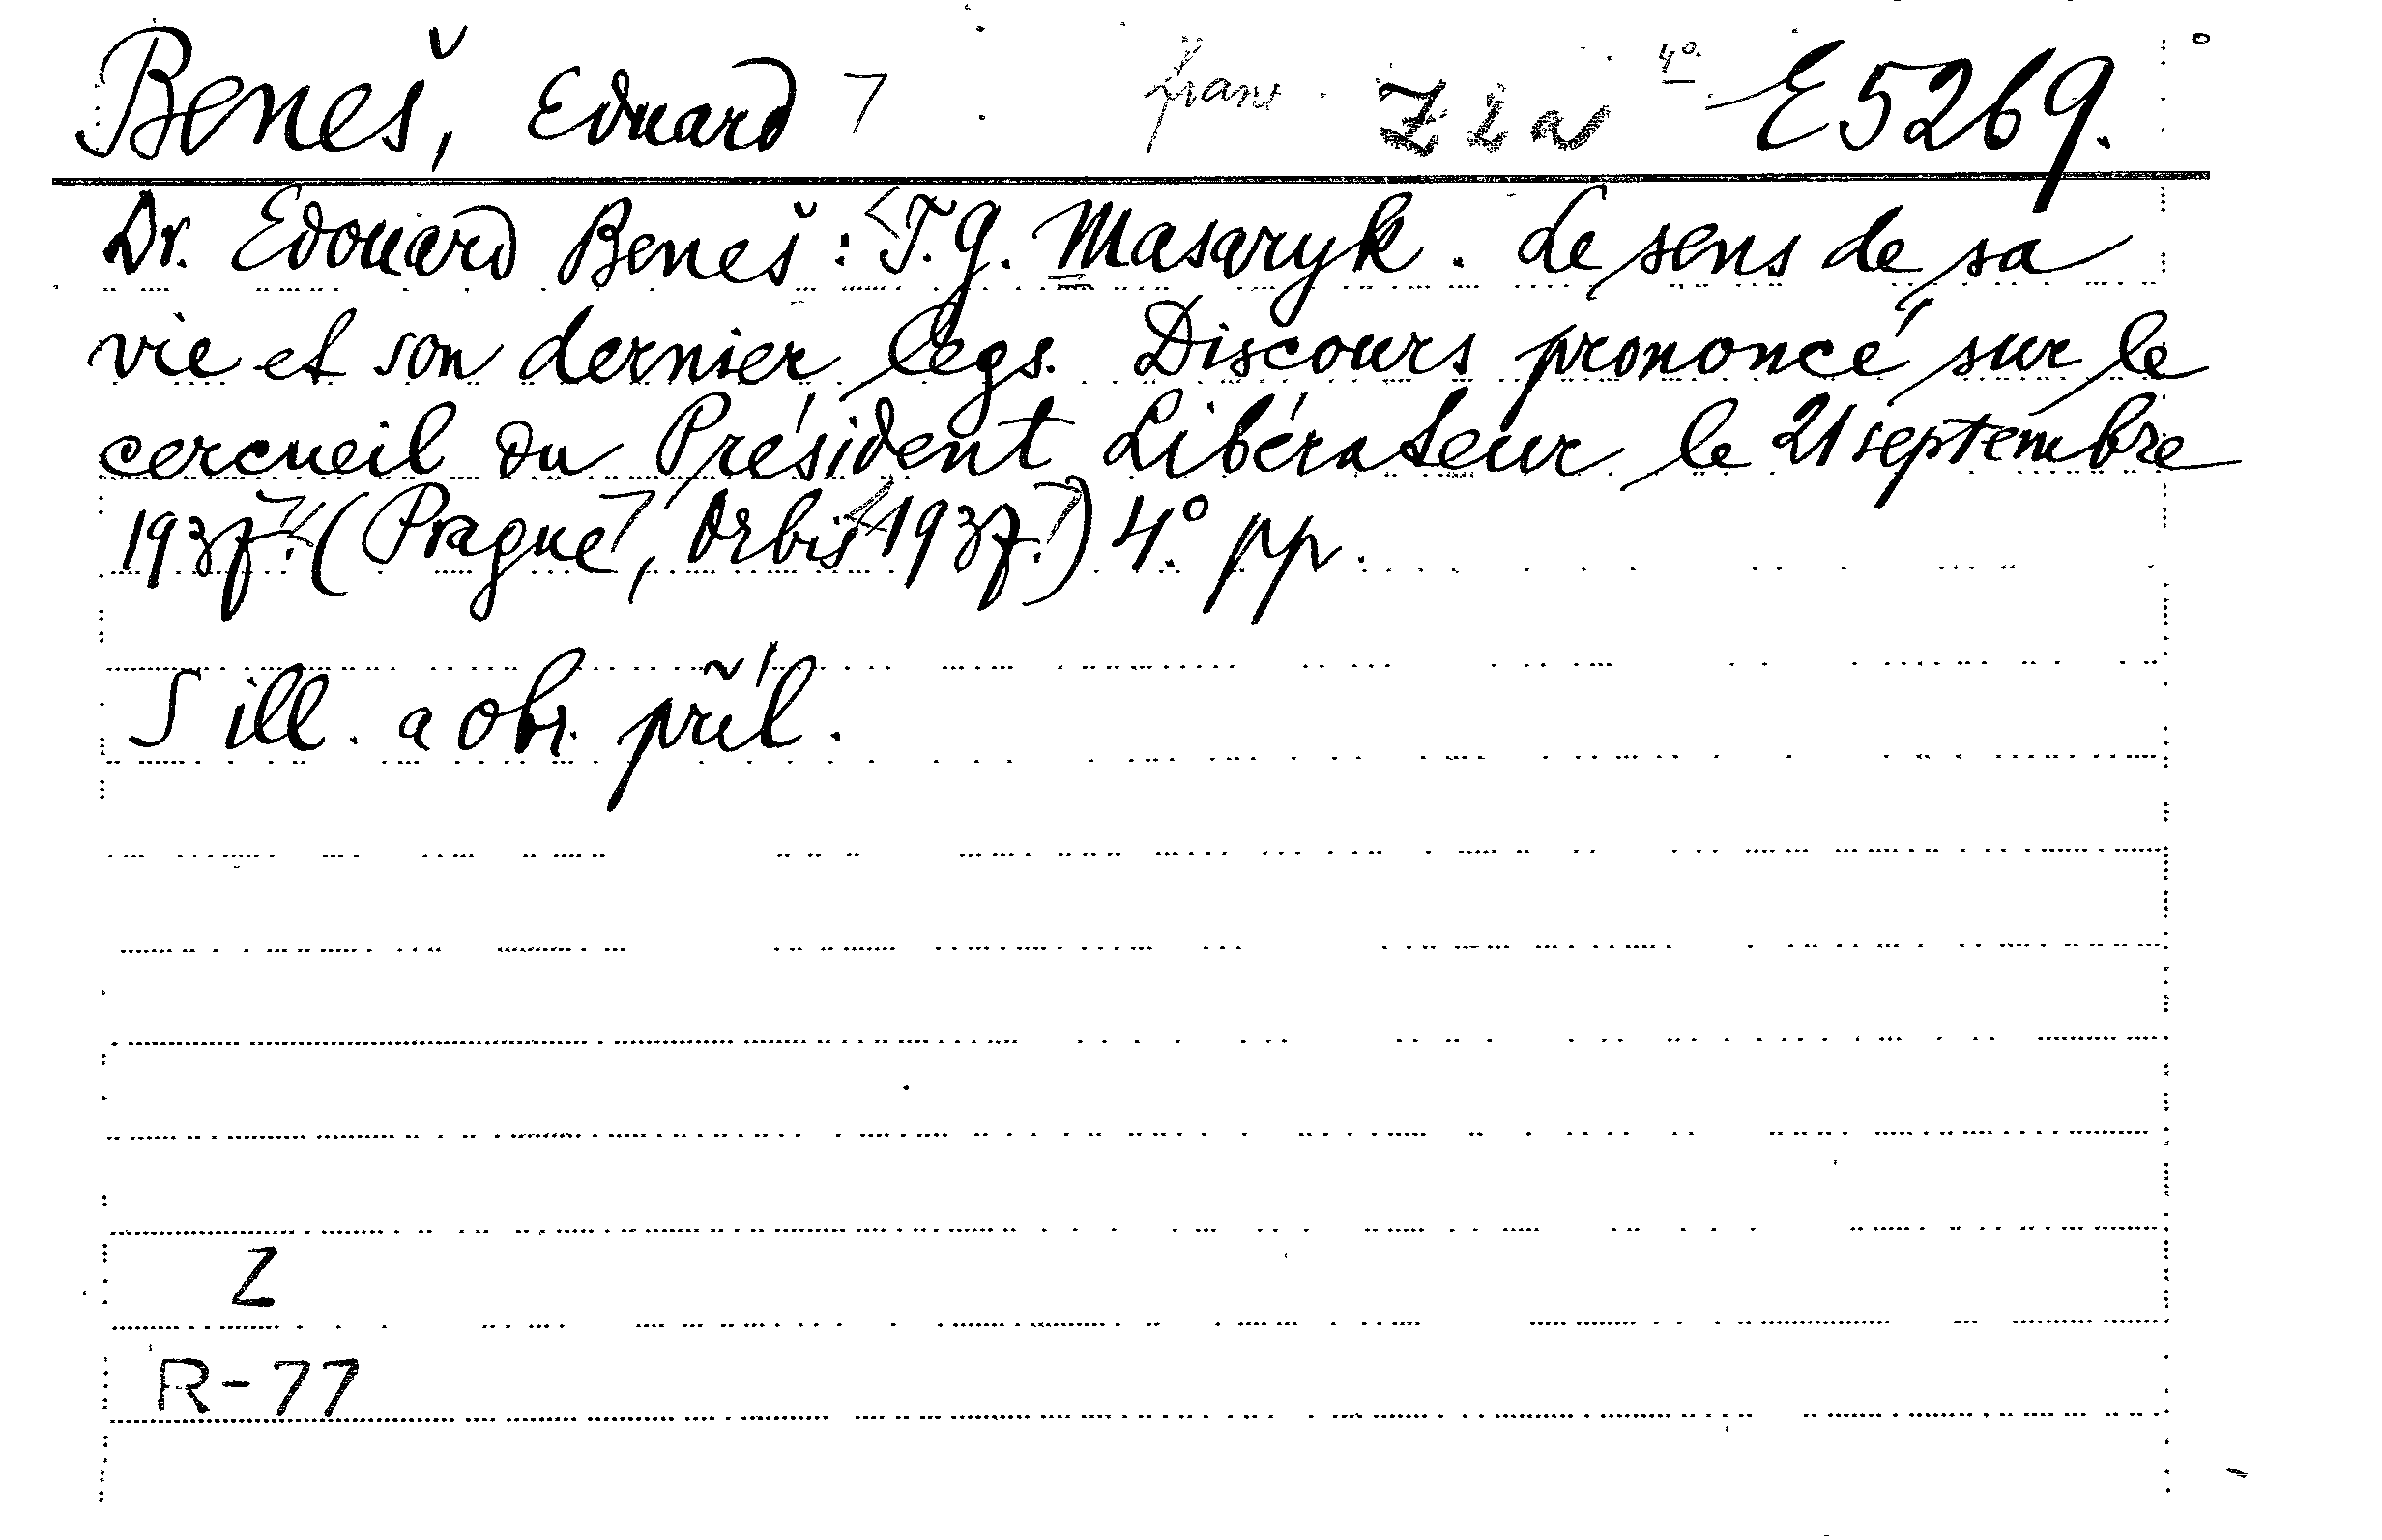 Beneš, Eduard franc. Z 2 a 4° E 5269.
Dr. Edouard Beneš: T. G. Masaryk. Le sens de sa
vie et son dernier legs. Discours prononcé sur le
cercueil du Président Libérateur le 21 septembre
1937. (Prague, Orbis 1937.) 4° pp.
S ill. a obr. příl.
Z
R-77